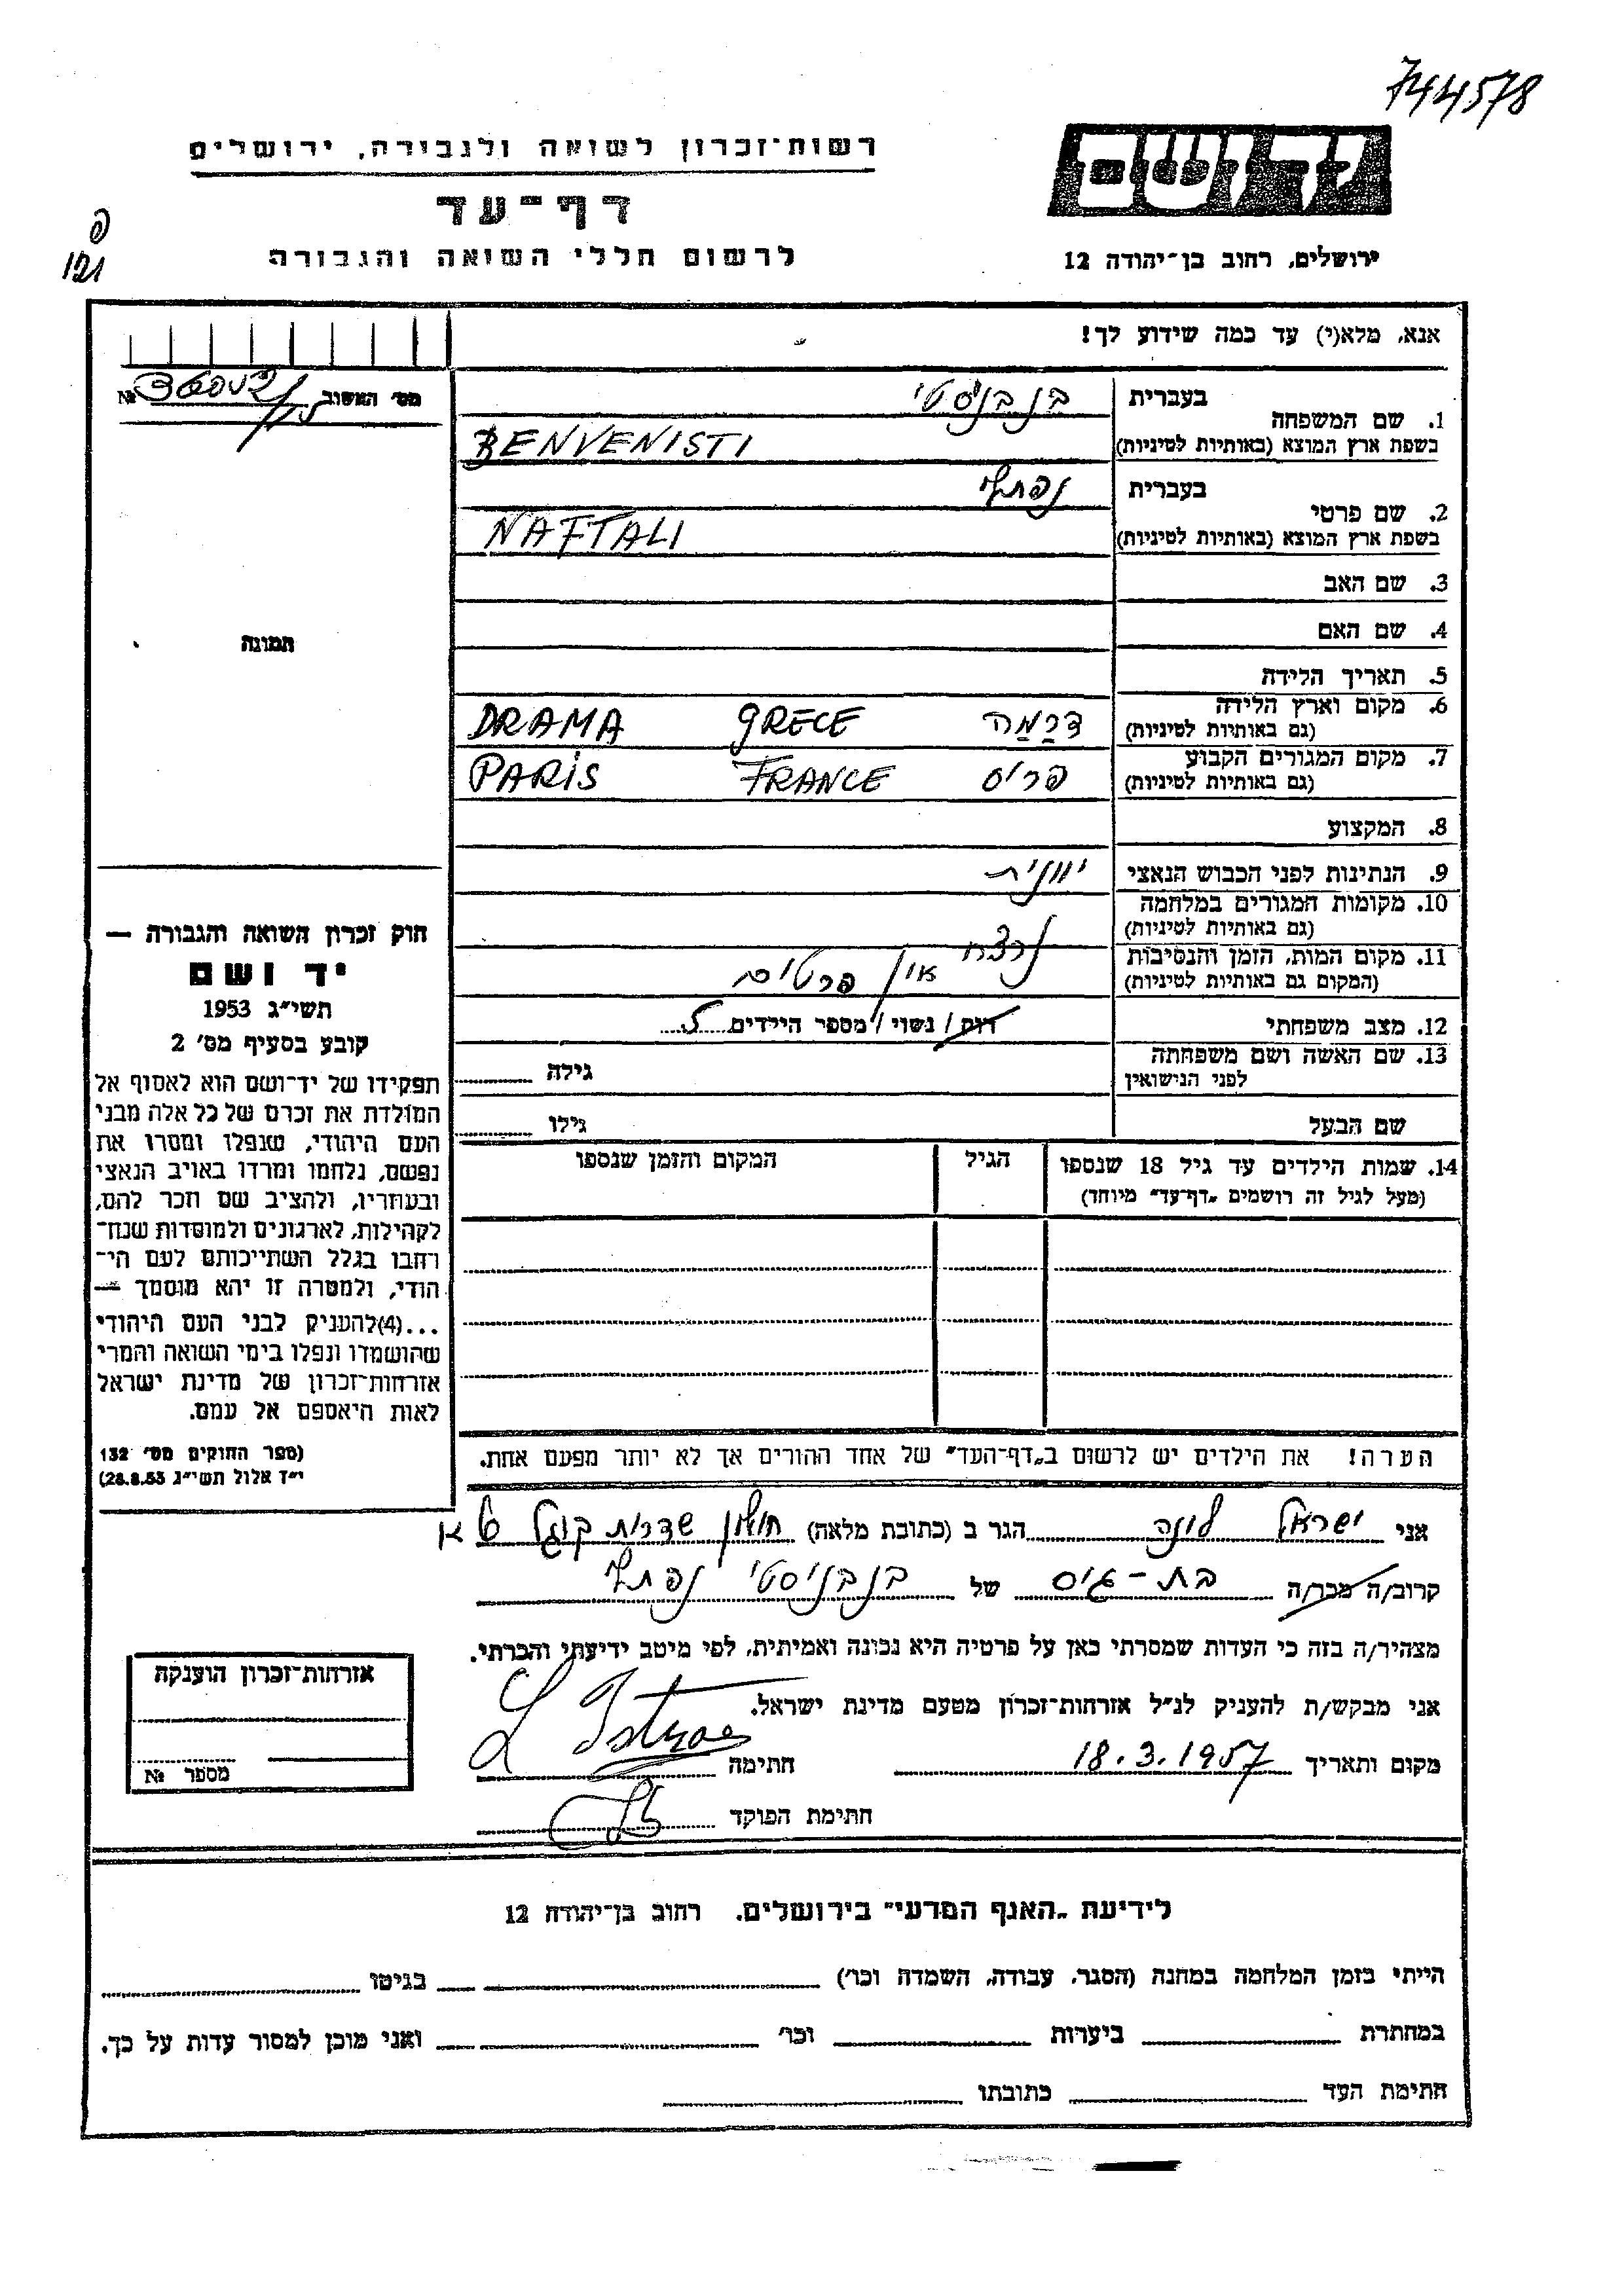 744578
רשות־זכרון לשואה ולגבורה, ירושלים
יד ושם
דף־עד
לרשום חללי השואה והגבורה
ירושלים, רחוב בן־יהודה 12
121
אנא, מלא(י) עד כמה שידוע לך!
מס׳ האשוב №
1. שם המשפחה
בעברית בן בניסטי
בשפת ארץ המוצא (באותיות לטיניות) BENVENISTI
2. שם פרטי
בעברית נפתלי
בשפת ארץ המוצא (באותיות לטיניות) NAFTALI
3. שם האב
4. שם האם
5. תאריך הלידה
6. מקום וארץ הלידה
(גם באותיות לטיניות) דרמה GRECE DRAMA
7. מקום המגורים הקבוע
(גם באותיות לטיניות) פריס FRANCE PARIS
8. המקצוע
9. הנתינות לפני הכבוש הנאצי יוונית
10. מקומות המגורים במלחמה
(גם באותיות לטיניות)
11. מקום המות, הזמן והנסיבות נרצח
(המקום גם באותיות לטיניות) אין פרטים
12. מצב משפחתי רווק / נשוי / מספר הילדים 5
13. שם האשה ושם משפחתה
לפני הנישואין גילה
שם הבעל גילו
14. שמות הילדים עד גיל 18 שנספו הגיל המקום והזמן שנספו
(מעל לגיל זה רושמים „דף־עד״ מיוחד)
הערה! את הילדים יש לרשום ב„דף־העד״ של אחד ההורים אך לא יותר מפעם אחת.
תמונה
חוק זכרון השואה והגבורה —
יד ושם
תשי״ג 1953
קובע בסעיף מס׳ 2
תפקידו של יד־ושם הוא לאסוף אל
המולדת את זכרם של כל אלה מבני
העם היהודי, שנפלו ומסרו את
נפשם, נלחמו ומרדו באויב הנאצי
ובעוזריו, ולהציב שם וזכר להם,
לקהילות, לארגונים ולמוסדות שנח־
רבו בגלל השתייכותם לעם הי־
הודי, ולמטרה זו יהא מוסמך —
...(4)להעניק לבני העם היהודי
שהושמדו ונפלו בימי השואה והמרי
אזרחות־זכרון של מדינת ישראל
לאות היאספם אל עמם.
(ספר החוקים מס׳ 132
י״ז אלול תשי״ג 28.8.53)
אני ישראל לונה הגר ב (כתובת מלאה) חולון שדרות קוגל
קרוב/ה מכר/ה בת-גיס של בן בניסטי נפתלי
מצהיר/ה בזה כי העדות שמסרתי כאן על פרטיה היא נכונה ואמיתית, לפי מיטב ידיעתי והכרתי.
אני מבקש/ת להעניק לנ״ל אזרחות־זכרון מטעם מדינת ישראל.
מקום ותאריך 18.3.1957 חתימה L Israel
חתימת הפוקד
אזרחות־זכרון הוענקה
מספר №
לידיעת „האגף המדעי״ בירושלים, רחוב בן־יהודה 12
הייתי בזמן המלחמה במחנה (הסגר, עבודה, השמדה וכו׳) בגיטו
במחתרת ביערות וכו׳ ואני מוכן למסור עדות על כך.
חתימת העד כתובתו